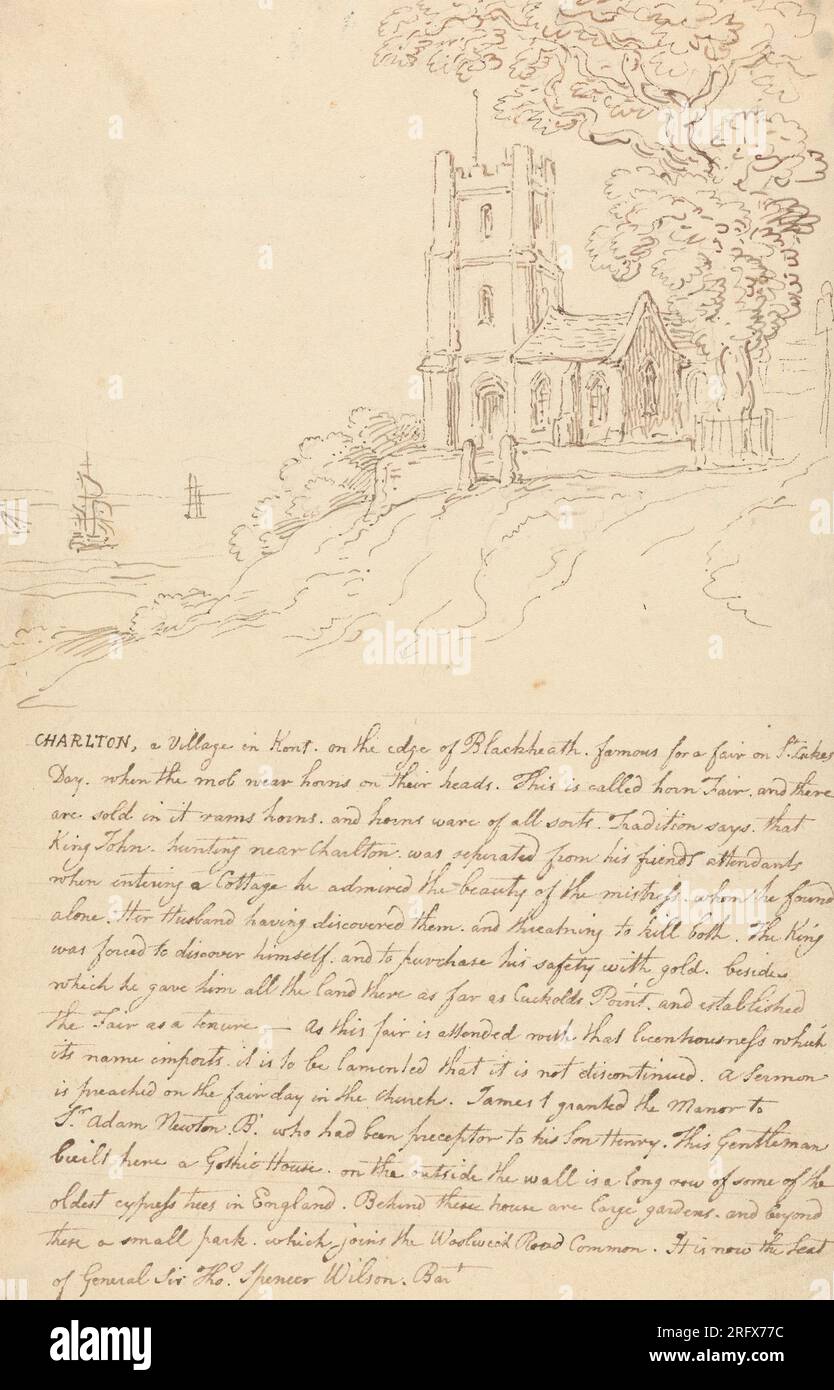 CHARLTON, a Village in Kent. on the edge of Blackheath. famous for a fair on St. Lukes
Day. when the mob wear horns on their heads. This is called horn Fair. and there
are sold in it rams horns. and horns ware of all sorts. Tradition says. that
King John. hunting near Charlton. was seperated from his friends attendants
when entering a Cottage he admired the beauty of the mistress. whom he found
alone. Her Husband having discovered them. and threatning to kill both. The King
was forced to discover himself. and to purchase his safety with gold. beside
which he gave him all the land there as far as Cuckolds Point. and established
the Fair as a tenure — As this fair is attended with that licentiousness which
its name imports. it is to be lamented that it is not discontinued. A Sermon
is preached on the fair day in the Church. James I granted the Manor to
Sr. Adam Newton. Bt. who had been preceptor to his Son Henry. This Gentleman
built here a Gothic House. on the outside the wall is a long row of some of the
oldest cypress trees in England. Behind these house are large gardens. and beyond
these a small park. which joins the Woolwich Road Common. It is now the Seat
of General Sir Thos. Spencer Wilson. Bart
alamy
alamy
Image ID: 2RFX77C
www.alamy.com